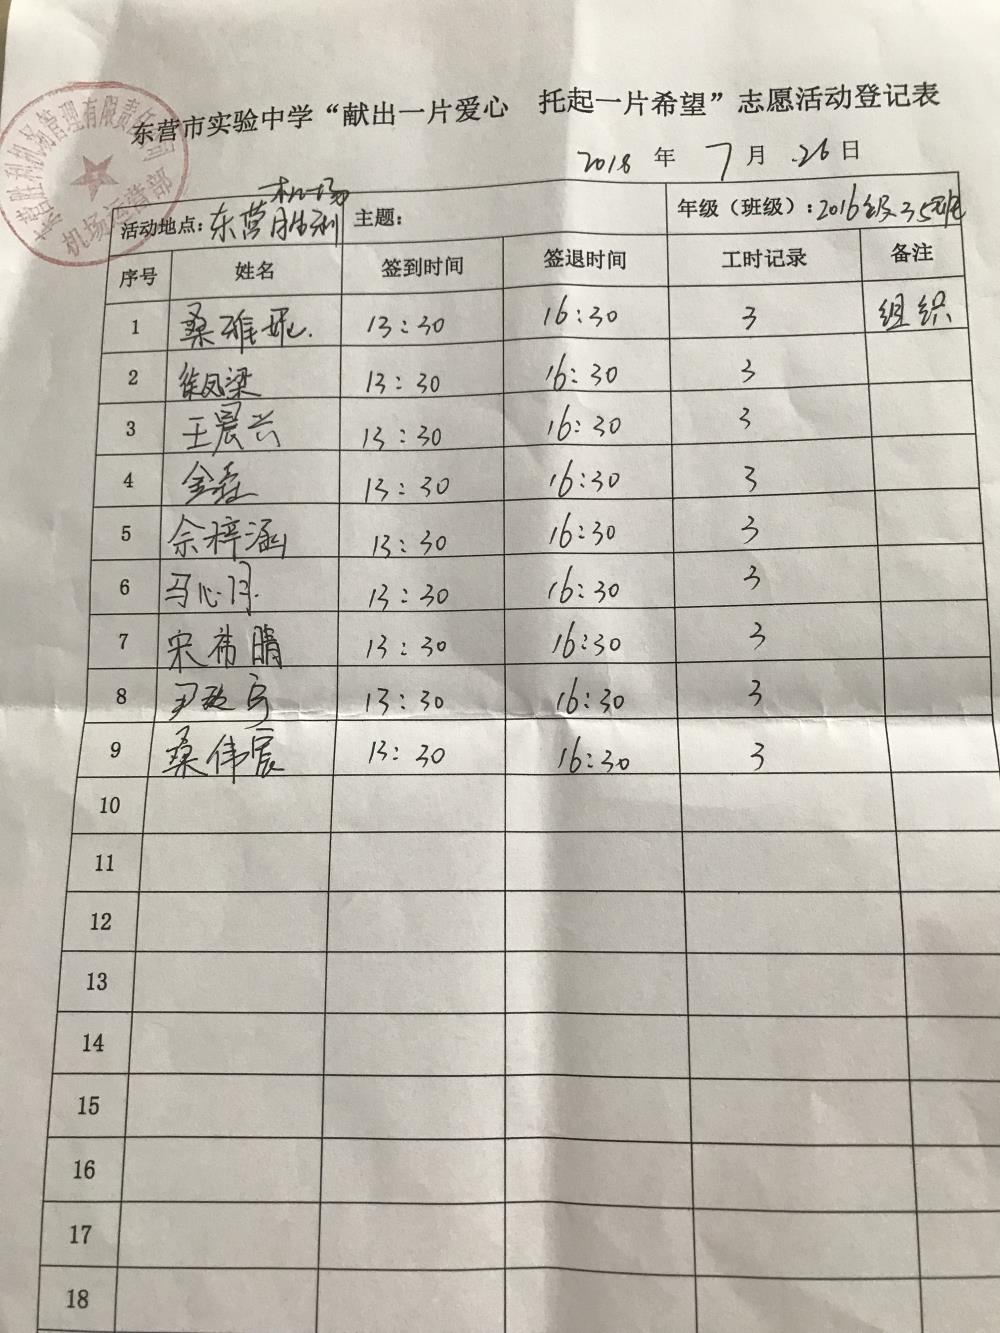 东营市实验中学“献出一片爱心 托起一片希望”志愿活动登记表
2018 年 7 月 26 日
活动地点：东营胜利机场 主题： 年级（班级）：2016级35班
序号 姓名 签到时间 签退时间 工时记录 备注
1 桑雅 13:30 16:30 3 组织
2 徐凤梁 13:30 16:30 3
3 王晨兴 13:30 16:30 3
4 金 13:30 16:30 3
5 余梓涵 13:30 16:30 3
6 马心 13:30 16:30 3
7 宋祎晴 13:30 16:30 3
8 尹 13:30 16:30 3
9 桑伟宸 13:30 16:30 3
10
11
12
13
14
15
16
17
18
东营胜利机场管理有限责任公司
机场运营部